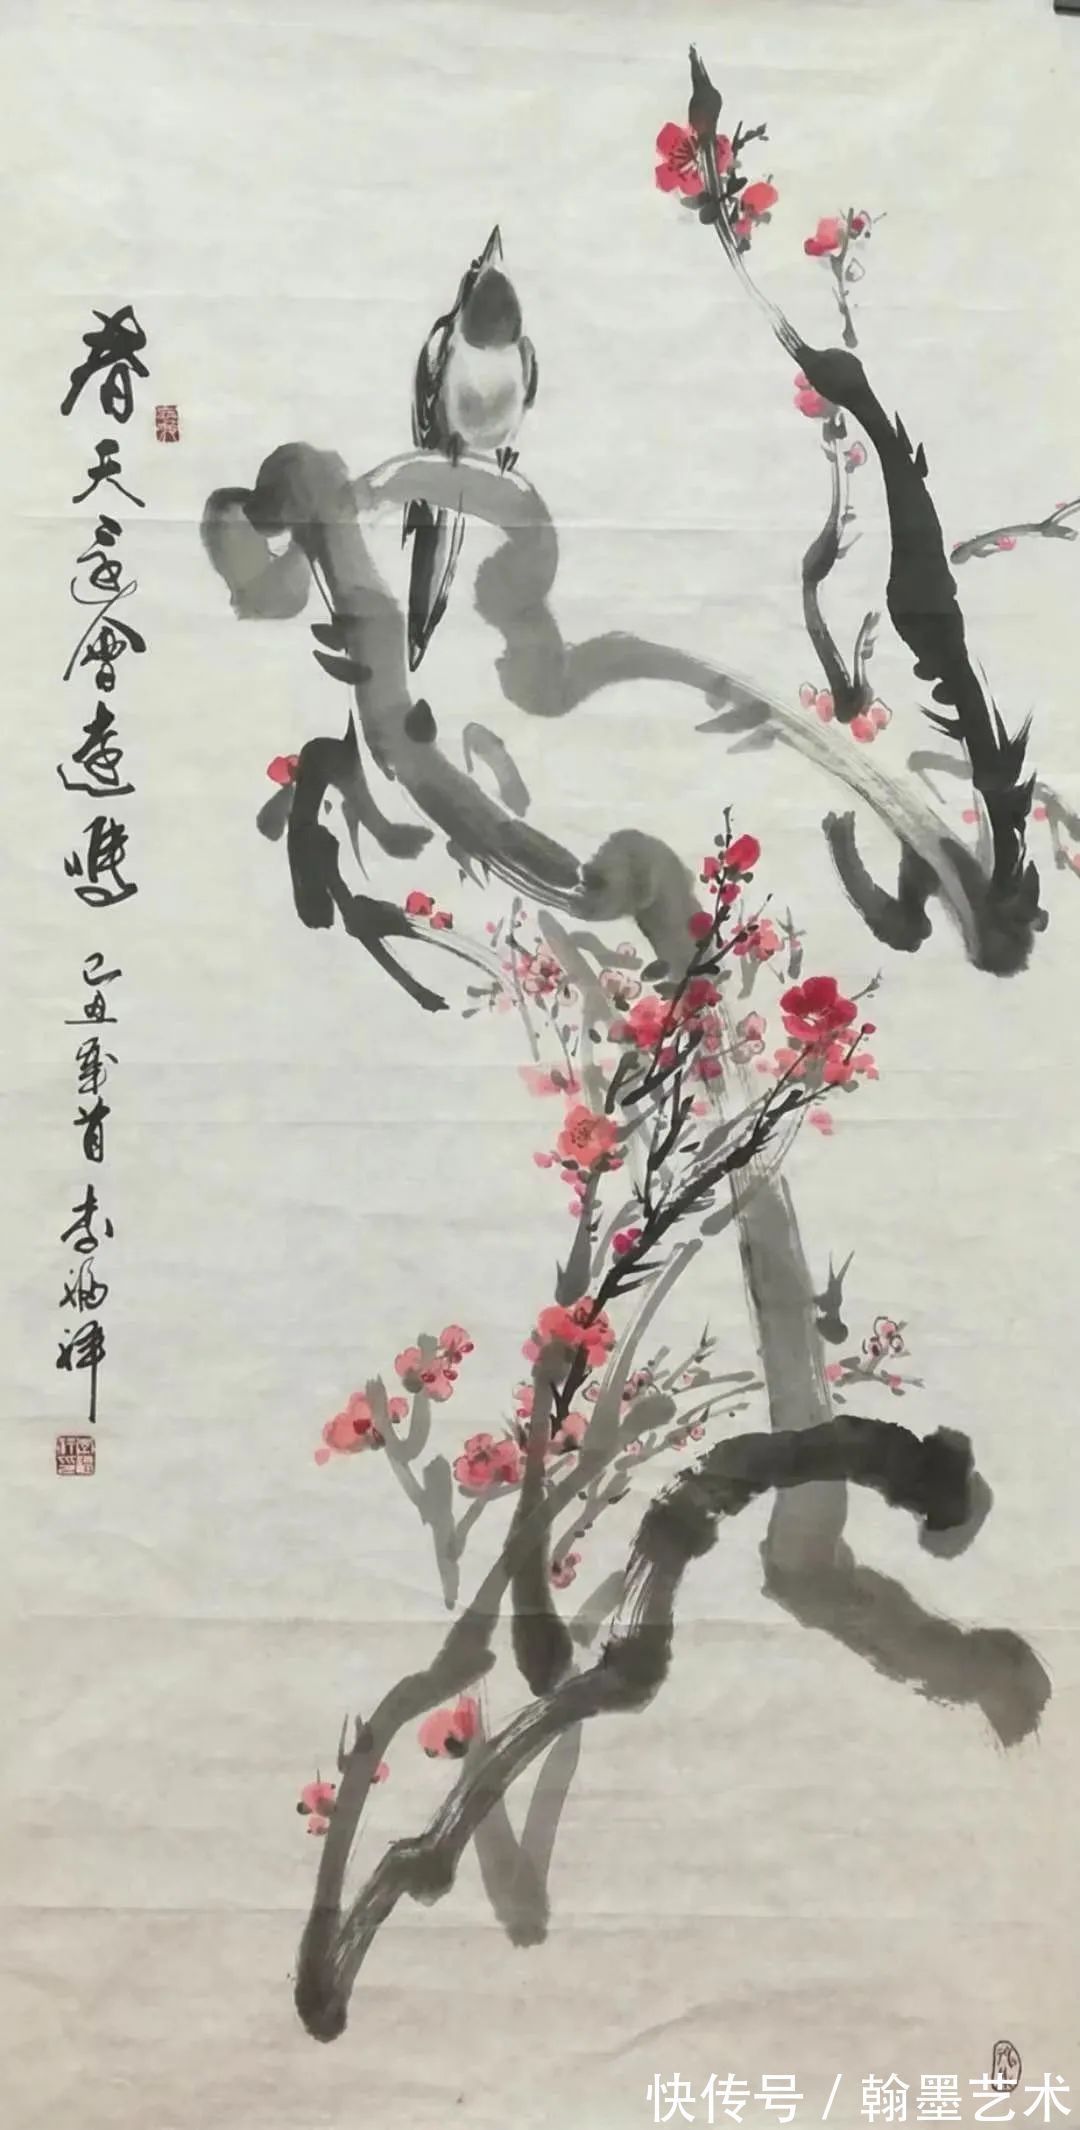 春天還會遠嗎 己丑歲首 李福祥
快传号 / 翰墨艺术